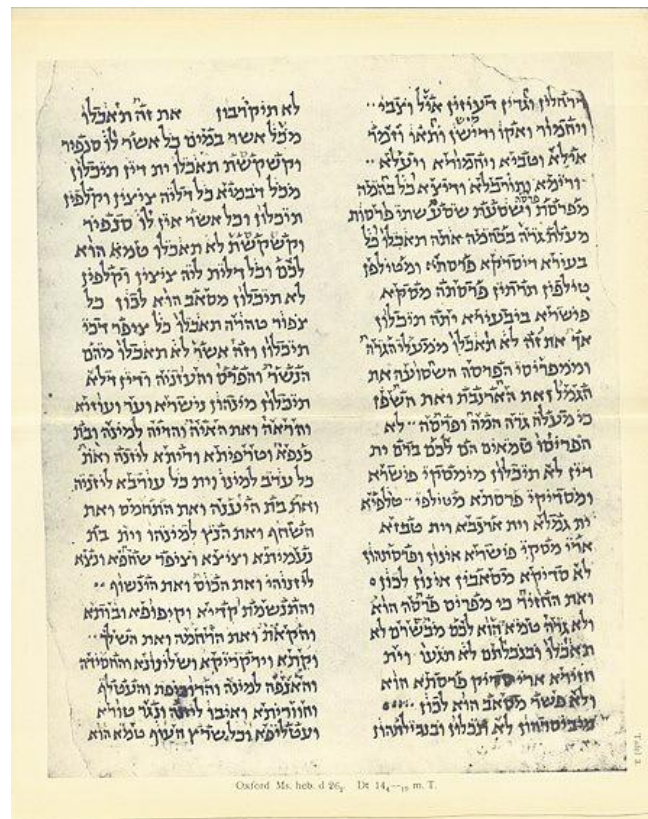 דרחלין וגדין דעיזין איל וצבי
ויחמור ואקו ודישן ותאו וזמר
אילא וטביא ויחמורא ויעלא
ורימא ותורבלא ודיצא כל בהמה
מפרסת פרסה ושסעת שסע שתי פרסות
מעלת גרה בבהמה אתה תאכלו כל
בעירא דיסדיקא פרסתי ומטילפן
טילפין תרתין פרסתה מסקא
פישרא ביבעירא יתה תיכלון
אך את זה לא תאכלו ממעלי הגרה
וממפריסי הפרסה השסועה את
הגמל ואת הארנבת ואת השפן
כי מעלה גרה המה ופרסה לא
הפריסו טמאים הם לכם ברם ית
דין לא תיכלון מימסקי פישרא
ומסדיקי פרסתא מטילפי טלפיא
ית גמלא וית ארנבא וית טפזא
ארי מסקי פישרא אינון ופרסתהון
לא סדיקא מסאבין אינון לכון
ואת החזיר כי מפריס פרסה הוא
ולא גרה טמא הוא לכם מבשרם לא
תאכלו ובנבלתם לא תגעו וית
חזירא ארי סדיק פרסתא הוא
ולא פשר מסאב הוא לכון
מיביסרהון לא תכלון ובנבילתהון
לא תיקרבון את זה תאכלו
מכל אשר במים כל אשר לו סנפיר
וקשקשת תאכלו ית דין תיכלון
מכל דבמיא כל דליה ציצין וקלפין
תיכלון וכל אשר אין לו סנפיר
וקשקשת לא תאכלו טמא הוא
לכם וכל דילית ליה ציצין וקלפין
לא תיכלון מסאב הוא לכון כל
צפור טהורה תאכלו כל ציפר דכי
תיכלון וזה אשר לא תאכלו מהם
הנשר והפרס והעזניה ודין דילא
תיכלון מינהון נישרא וער ועוזיא
והראה ואת האיה והדיה למינה ובת
כנפא וטרפיתא ודיתא ליזנה ואת
כל ערב למינו וית כל עורבא ליזניה
ואת בת היענה ואת התחמס ואת
השחף ואת הנץ למינהו וית בת
נעמיתא וציצא וציפר שחפא ונצא
ליזנוהי ואת הכוס ואת הינשוף
והתנשמת קדיא וקיפופא ובותא
והקאת ואת הרחמה ואת השלך
וקתא וירקריקא ושלינונא והחסידה
והאנפה למינה והדוכיפת והעטלף
וחווריתא ואיבו ליזנה ונגר טורא
ועטליפא וכל שרץ העוף טמא הוא
Oxford Ms. heb. d 26₂. Dt 14₄—₁₉ m. T.
Tafel 3.